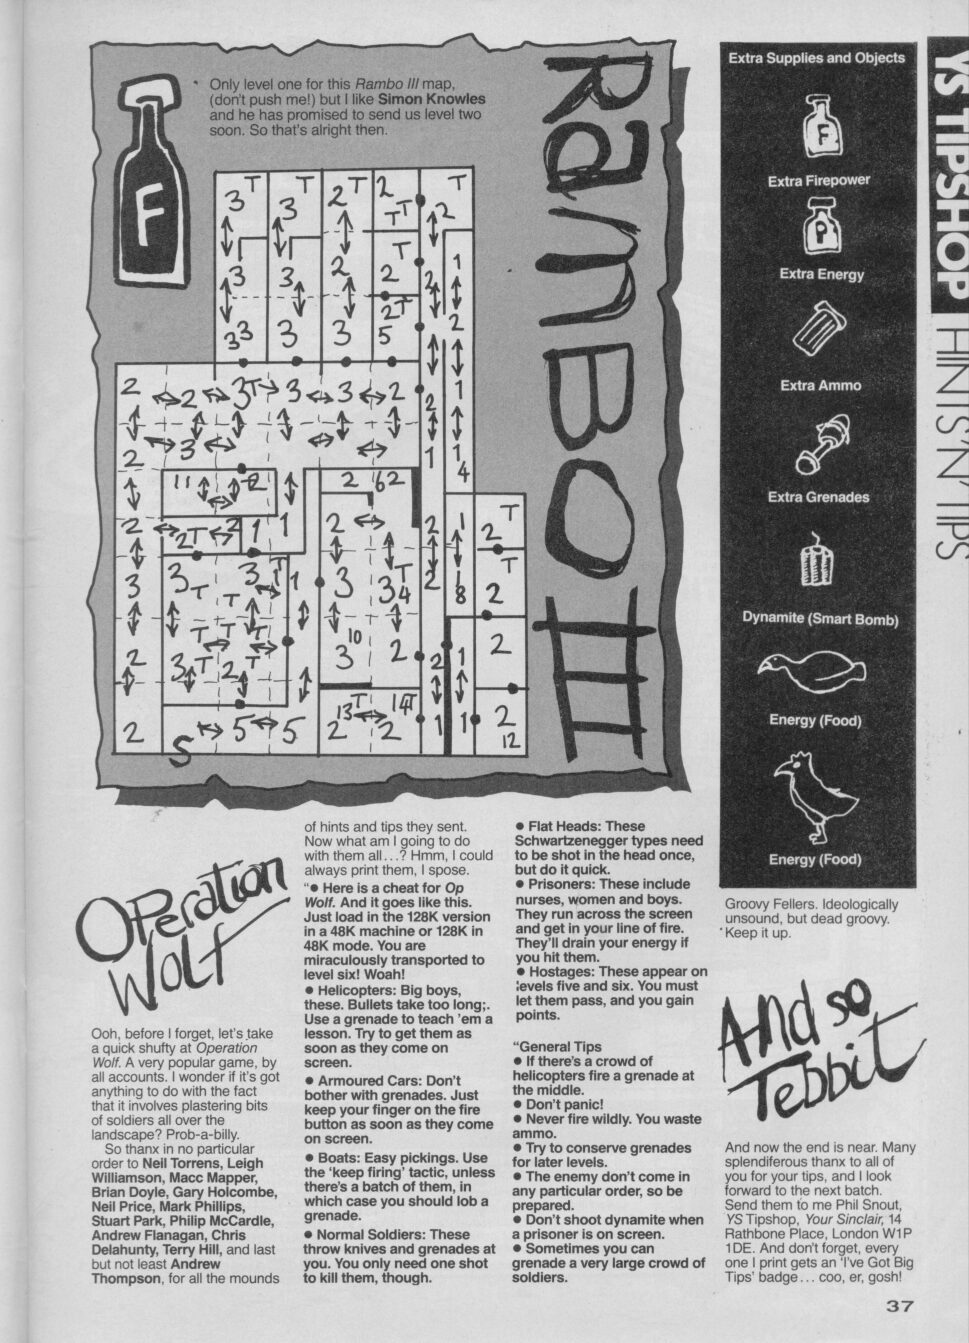 Only level one for this Rambo III map,
(don't push me!) but I like Simon Knowles
and he has promised to send us level two
soon. So that's alright then.
F
Rambo III
Extra Supplies and Objects
F
Extra Firepower
P
Extra Energy
Extra Ammo
Extra Grenades
Dynamite (Smart Bomb)
Energy (Food)
Energy (Food)
YS TIPSHOP
HINTS'N'TIPS
Operation
Wolf
Ooh, before I forget, let's take
a quick shufty at Operation
Wolf. A very popular game, by
all accounts. I wonder if it's got
anything to do with the fact
that it involves plastering bits
of soldiers all over the
landscape? Prob-a-billy.
So thanx in no particular
order to Neil Torrens, Leigh
Williamson, Macc Mapper,
Brian Doyle, Gary Holcombe,
Neil Price, Mark Phillips,
Stuart Park, Philip McCardle,
Andrew Flanagan, Chris
Delahunty, Terry Hill, and last
but not least Andrew
Thompson, for all the mounds
of hints and tips they sent.
Now what am I going to do
with them all...? Hmm, I could
always print them, I spose.
"● Here is a cheat for Op
Wolf. And it goes like this.
Just load in the 128K version
in a 48K machine or 128K in
48K mode. You are
miraculously transported to
level six! Woah!
● Helicopters: Big boys,
these. Bullets take too long;.
Use a grenade to teach 'em a
lesson. Try to get them as
soon as they come on
screen.
● Armoured Cars: Don't
bother with grenades. Just
keep your finger on the fire
button as soon as they come
on screen.
● Boats: Easy pickings. Use
the 'keep firing' tactic, unless
there's a batch of them, in
which case you should lob a
grenade.
● Normal Soldiers: These
throw knives and grenades at
you. You only need one shot
to kill them, though.
● Flat Heads: These
Schwartzenegger types need
to be shot in the head once,
but do it quick.
● Prisoners: These include
nurses, women and boys.
They run across the screen
and get in your line of fire.
They'll drain your energy if
you hit them.
● Hostages: These appear on
levels five and six. You must
let them pass, and you gain
points.
"General Tips
● If there's a crowd of
helicopters fire a grenade at
the middle.
● Don't panic!
● Never fire wildly. You waste
ammo.
● Try to conserve grenades
for later levels.
● The enemy don't come in
any particular order, so be
prepared.
● Don't shoot dynamite when
a prisoner is on screen.
● Sometimes you can
grenade a very large crowd of
soldiers.
Groovy Fellers. Ideologically
unsound, but dead groovy.
Keep it up.
And so
Tebbit
And now the end is near. Many
splendiferous thanx to all of
you for your tips, and I look
forward to the next batch.
Send them to me Phil Snout,
YS Tipshop, Your Sinclair, 14
Rathbone Place, London W1P
1DE. And don't forget, every
one I print gets an 'I've Got Big
Tips' badge... coo, er, gosh!
37